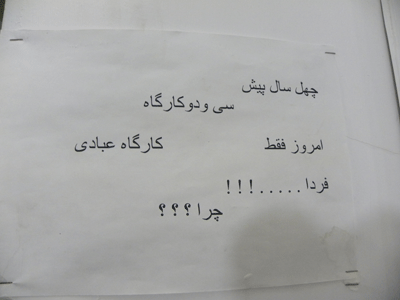 چهل سال پیش
سی ودوکارگاه
امروز فقط کارگاه عبادی
فردا . . . . . ! ! !
چرا ؟ ؟ ؟